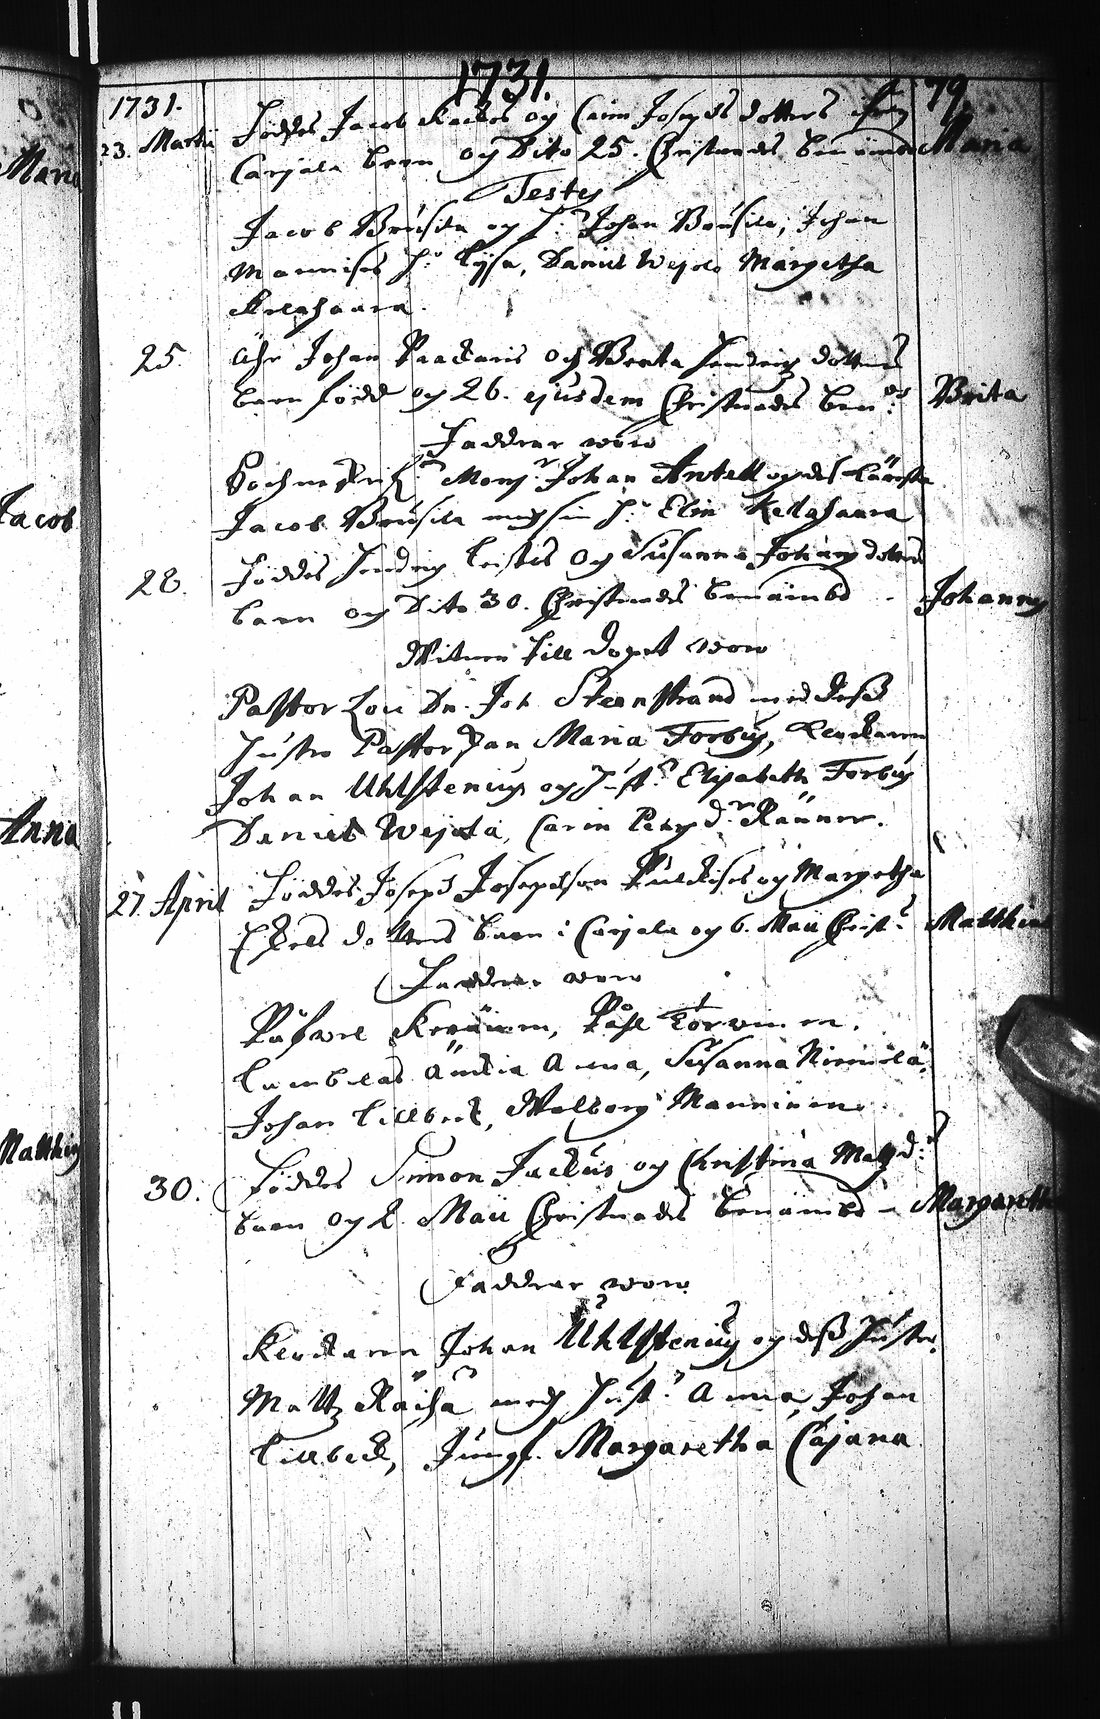 1731.
79.
1731.
23. Martii Föddes Jacob og Carin Josephs dotters
Carjala barn og Dito 25. Christnades benämbd Maria
Testes
Jacob Brusila og h: Johan Brusila, Johan
Mannises h: Lysa, Daniel Wejola Margetha
Kelahaara.
25. Ähr Johan Raakaris och Brita Hendrichs dotters
barn född og 26. ejusdem Christnades ben: Brita
Faddrar woro
Monsr Johan Antell og
Jacob Brusila med sin h: Elin Kelahaara
28. Föddes Hendrich og Susanna Johans dotters
barn og Dito 30. Christnades benämbd - Johannes
Witnen till dopet woro
Pastor Loci Dn. Joh Steenstrand med dess
hustro Pastorskan Maria Forbus, Klockaren
Johan Uhlstenius og hust: Elisabeth Forbus
Daniel Wejola, Carin Pehrs dr Räuner.
27. April Föddes Joseph Josephson Pulkises og Margetha
dotters barn i Carjala og 6. Maii Christ: Matthias
Faddrar woro
Påhl Torvinen,
Anna, Susanna
Johan Lillbeck, Walborg Manninen
30. Föddes Simon Jackus og Christina Matts d:
barn og 2. Maii Christnades benämbd - Margaretha
Faddrar woro
Klockaren Johan Uhlstenius og dess hustro,
Matts Räihä med hust: Anna, Johan
Lillbeck, Jungf. Margaretha Cajana
Maria
Jacob
Anna
Matthias